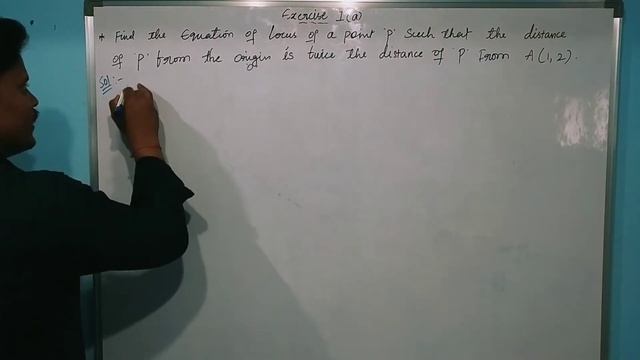 Exercise 1(a)
* Find the Equation of locus of a point 'P' Such that the distance
of 'P' from the origin is twice the distance of 'P' From A(1,2).
Sol:-